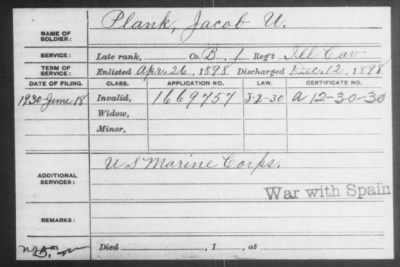 NAME OF SOLDIER: Plank, Jacob U.
SERVICE: Late rank, Co. B, 1 Reg't Ill Cav
TERM OF SERVICE: Enlisted Apr. 26, 1898 Discharged Dec. 12, 1898
DATE OF FILING. CLASS. APPLICATION NO. LAW. CERTIFICATE NO.
1930-June 18 Invalid, 1669757 J-2-30 A 12-30-30
Widow,
Minor,
ADDITIONAL SERVICES: U S Marine Corps.
War with Spain
REMARKS:
Died , 1 , at